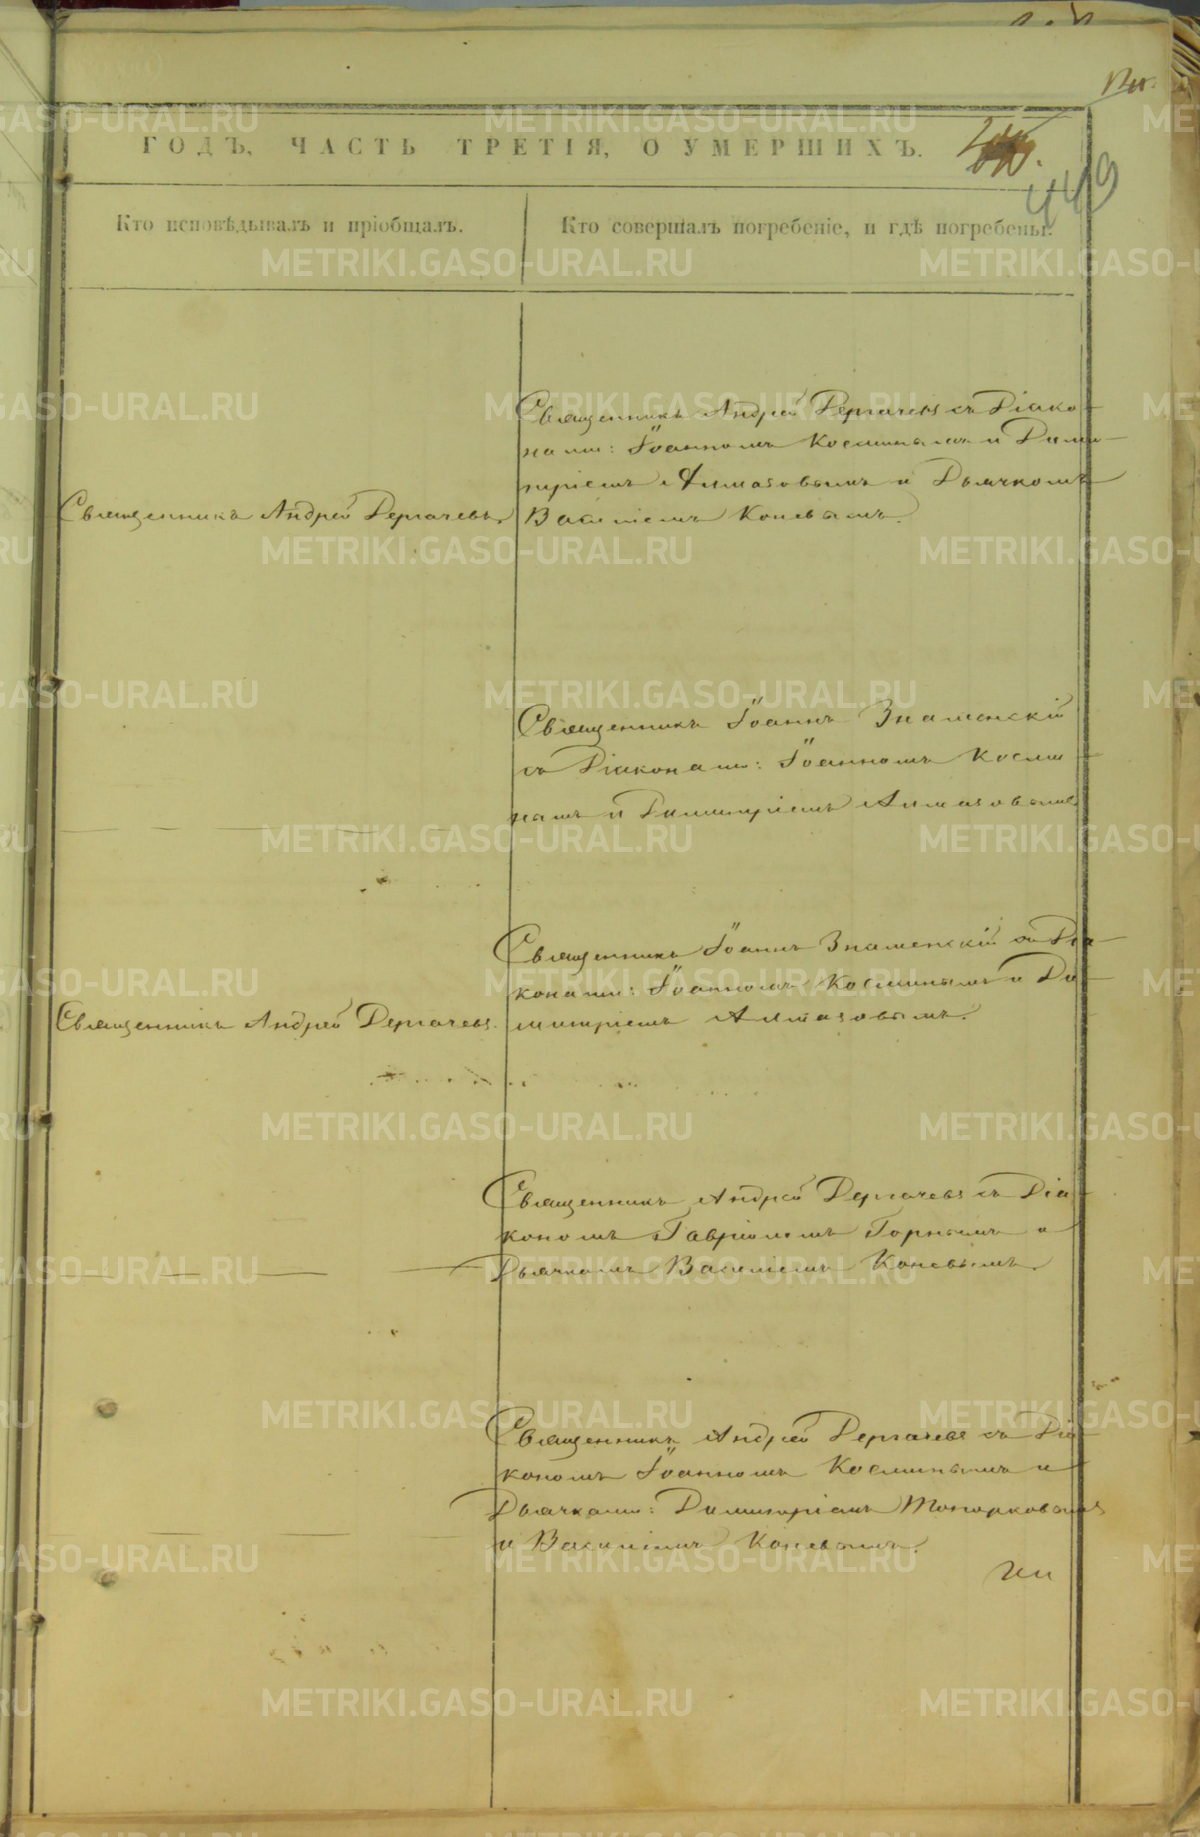 ГОДЪ, ЧАСТЬ ТРЕТІЯ, О УМЕРШИХЪ.
449
Кто исповѣдывалъ и пріобщалъ.
Кто совершалъ погребеніе, и гдѣ погребены.
Священникъ Андрей Дергачевъ.
Священникъ Андрей Дергачевъ съ Діако-
нами: Іоанномъ Косминымъ и Дими-
тріемъ Алмазовымъ и Дьячкомъ
Василіемъ Коневымъ.
Священникъ Іоаннъ Знаменскій
съ Діаконами: Іоанномъ Косми-
нымъ и Димитріемъ Алмазовымъ
Священникъ Андрей Дергачевъ.
Священникъ Іоаннъ Знаменскій съ Діа-
конами: Іоанномъ Косминымъ и Ди-
митріемъ Алмазовымъ.
Священникъ Андрей Дергачевъ съ Діа-
кономъ Гавріиломъ Горнымъ и
Дьячкомъ Василіемъ Коневымъ.
Священникъ Андрей Дергачевъ съ Діа-
кономъ Іоанномъ Косминымъ и
Дьячками: Димитріемъ Топорковымъ
и Василіемъ Коневымъ.
METRIKI.GASO-URAL.RU